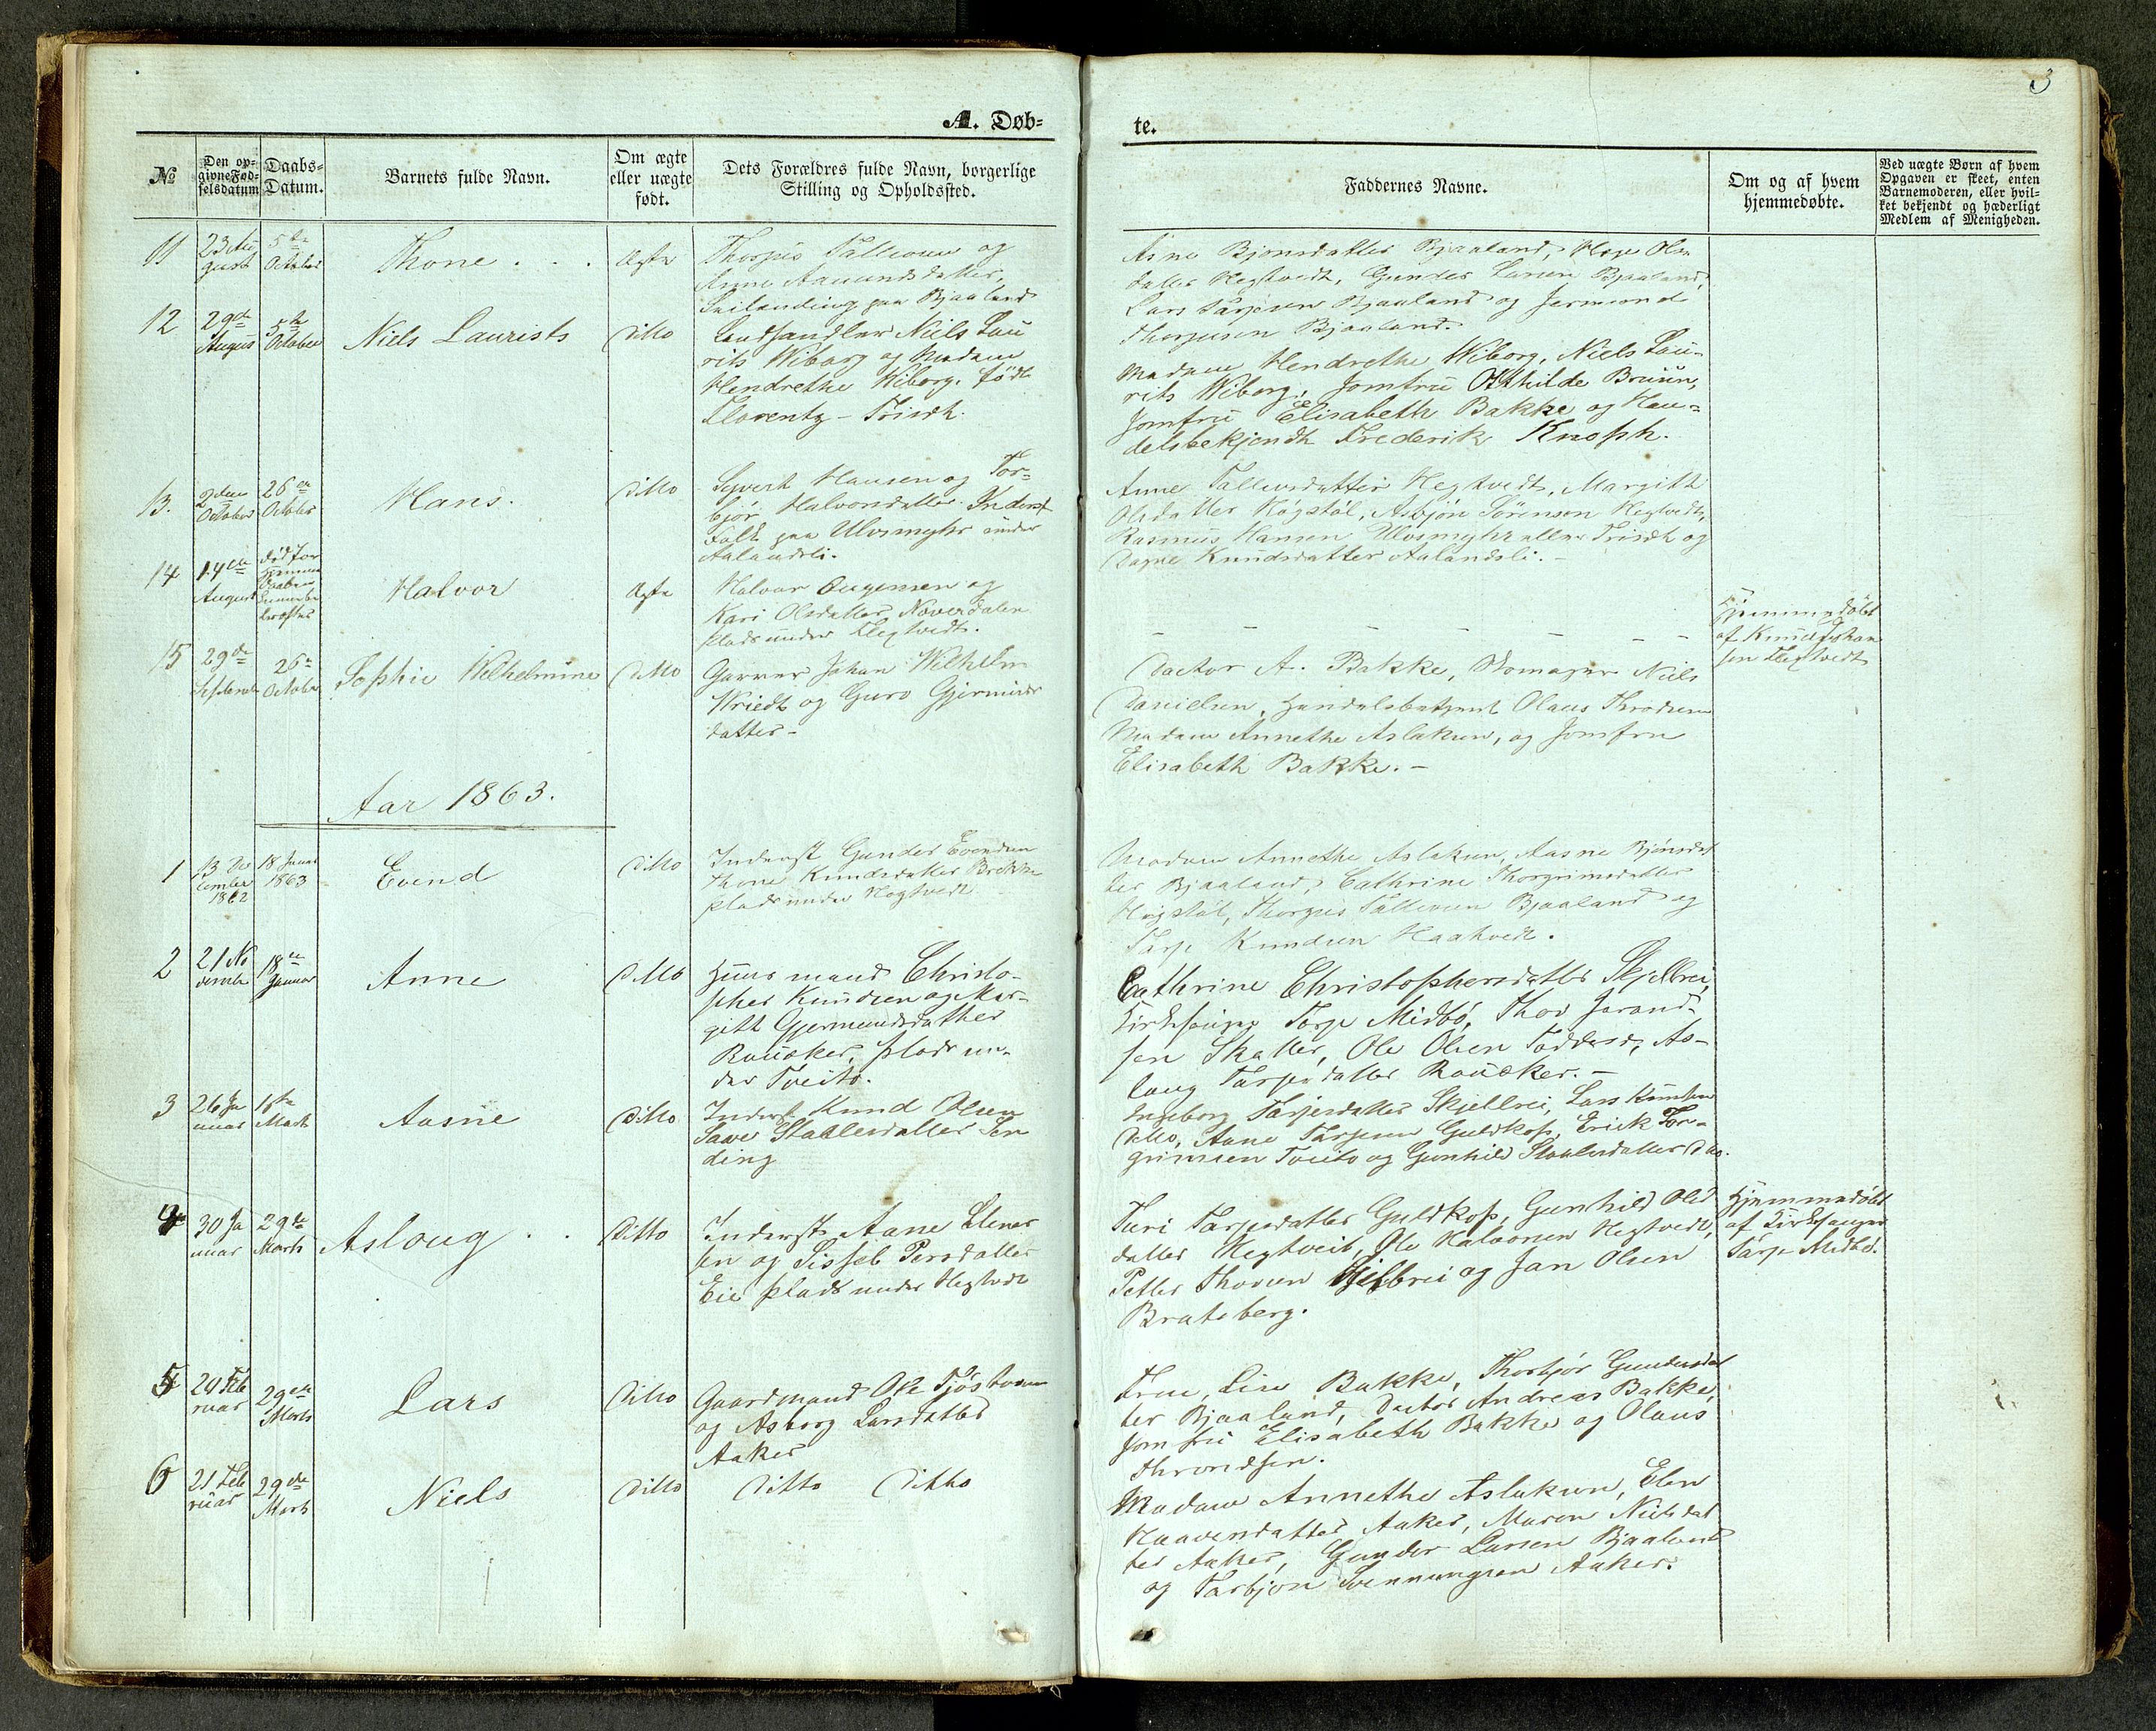 3
A. Døb-
te.
№
Den op-
givne Fød-
selsdatum
Daabs-
Datum.
Barnets fulde Navn.
Om ægte
eller uægte
født.
Dets Forældres fulde Navn, borgerlige
Stilling og Opholdssted.
Faddernes Navne.
Om og af hvem
hjemmedøbte.
Ved uægte Børn af hvem
Opgaven er skeet, enten
Barnemoderen, eller hvil-
ket bekjendt og hæderligt
Medlem af Menigheden.
11
23 Au
gust
5te
October
Thone . . .
Ægte
Thorgus Tallevsen og
Anne Aamundsdatter
paa Bjaaland
Asne Bjonsdatter Bjaaland, Hæge Ols-
datter Hegtvedt, Gunder Larsen Bjaaland,
Lars Tarjesen Bjaaland og Jermund
Thorgusen Bjaaland.
12
29de
August
5te
October
Niels Laurists
Ditto
Landhandler Niels Lau
rits Wiborg og Madam
Hendrethe Wiborg. født
Florentz-
Madam Hendrethe Wiborg, Niels Lau-
rits Wiborg, Jomfru Otthilde Bruun,
Jomfru Elisabeth Bakke og Han-
delsbekjendt Frederik Knoph.
13.
2den
October
26de
October
Hans.
Ditto
Syvert Hansen og Tor-
bjør Halvorsdatter. Inderst
Folk paa Ulvsmyhr under
Aalandsli.
Anne Tallevsdatter Hegtvedt, Margitt
Olsdatter Høgstøl, Asbjøn Sørensen Hegtvedt,
Rasmus Hansen Ulvsmyhr og
Dagne Knudsdatter Aalandsli. -
14
14de
August
død for
Hjemme
Daaben
Halvor
Ægte
Halvor og
Kari Olsdatter Noverdalen
plads under Hegtvedt.
- - - - - -
Hjemmedøbt
af Knud Johan
sen Hegtvedt
15
29de
Septemb
26de
October
Sophie Wilhelmine
Ditto
Garver Johan Wilhelm
Wriedt og Guro Gjermunds
datter -
Doctor A. Bakke, Skomager Niels
Danielsen, Handelsbetjent Olaus Throndsen
Madam Annethe Aslaksen, og Jomfru
Elisabeth Bakke. -
Aar 1863.
1
13 De
cember
1862
18 Januar
1863
Evend
Ditto
Inderst Gunder Evendsen
Thone Knudsdatter Brokke
plads under Hegtvedt
Madam Annethe Aslaksen, Aasne Bjønsdat
ter Bjaaland, Cathrine Thorgrimsdatter
Høgstøl, Thorgus Tallevsen Bjaaland og
Tarje Knudsen Haatvedt.
2
21 No
vember
18de
Januar
Anne
Ditto
Huusmand Christo-
pher Knudsen og Mar-
gitt Gjermundsdatter
Rauaker, plads un-
der Tveito.
Cathrine Christophersdatter Skjelbrei,
Kirkesanger Tarje Midbø, Thor Jarand-
sen Skatter, Ole Olsen, As-
laug Tarjesdatter Rauaker. -
3
26 Ja
nuar
1te
Marts
Aasne
Ditto
Inderst Knud Olsen
Save Staalesdatter Sen
ding
Ingeborg Tarjesdatter Skjelbrei, Lars Knudsen
Ditto, Aane Tarjesen Guldkop, Erick Tor-
grimsen Tveito og Gunhild Staalesdatter Do.
4
30 Ja
nuar
29de
Marts
Asloug . .
Ditto
Inderst Aane Ellenes
sen og Sissel Persdatter
Eie plads under Hegtvedt
Turi Tarjesdatter Guldkop, Gunhild Ols
datter Hegtveit, Ole Halvorsen Hegtvedt,
Petter Thorsen Skjelbrei og Jan Olsen
Bratsberg.
Hjemmedøbt
af Kirkesanger
Tarje Midbø.
5
20 Feb
ruar
29de
Marts
Lars
Ditto
Gaardmand Ole Tjøstovsen
og Asborg Larsdatter
Aaker
Frue, Lise Bakke, Thorbjør Gundersdat
ter Bjaaland, Doctor Andreas Bakke,
Jomfru Elisabeth Bakke og Olaus
Throndsen.
6
21 Feb
ruar
29de
Marts
Niels
Ditto
Ditto Ditto
Madam Annethe Aslaksen, Elen
Haaversdatter Aaker, Maren Nielsdat
ter Aaker, Gunder Larsen Bjaaland
og Tarbjøn Svennungsen Aaker.